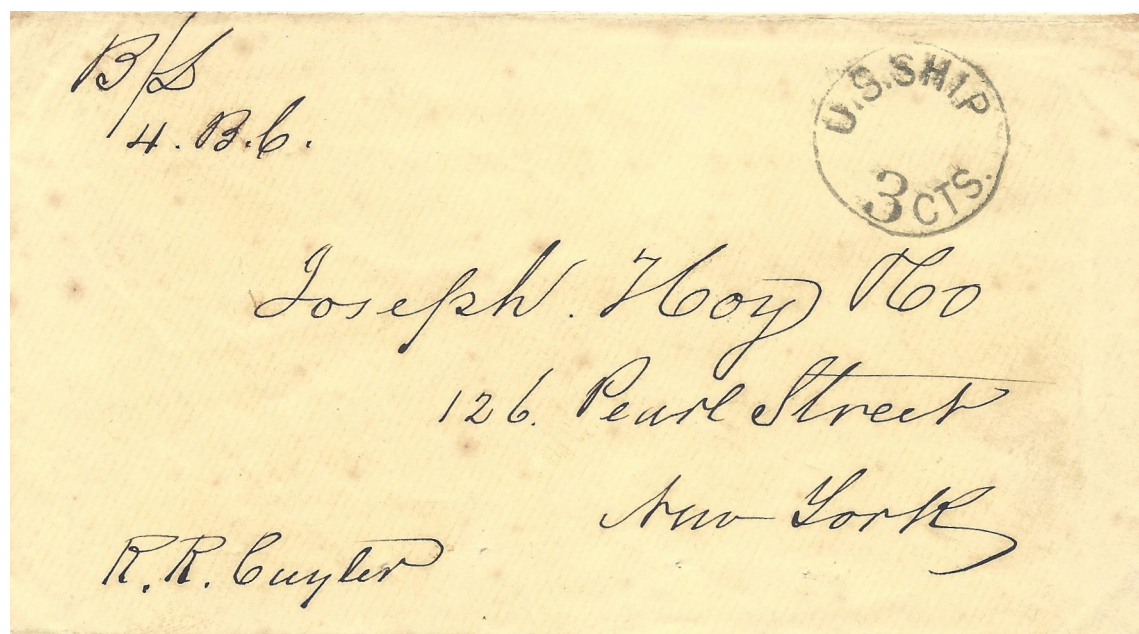 B/L
4. B.C.
U.S. SHIP
3 CTS.
Joseph. Hoy &Co
126. Pearl Street
New York
R. R. Cuyler